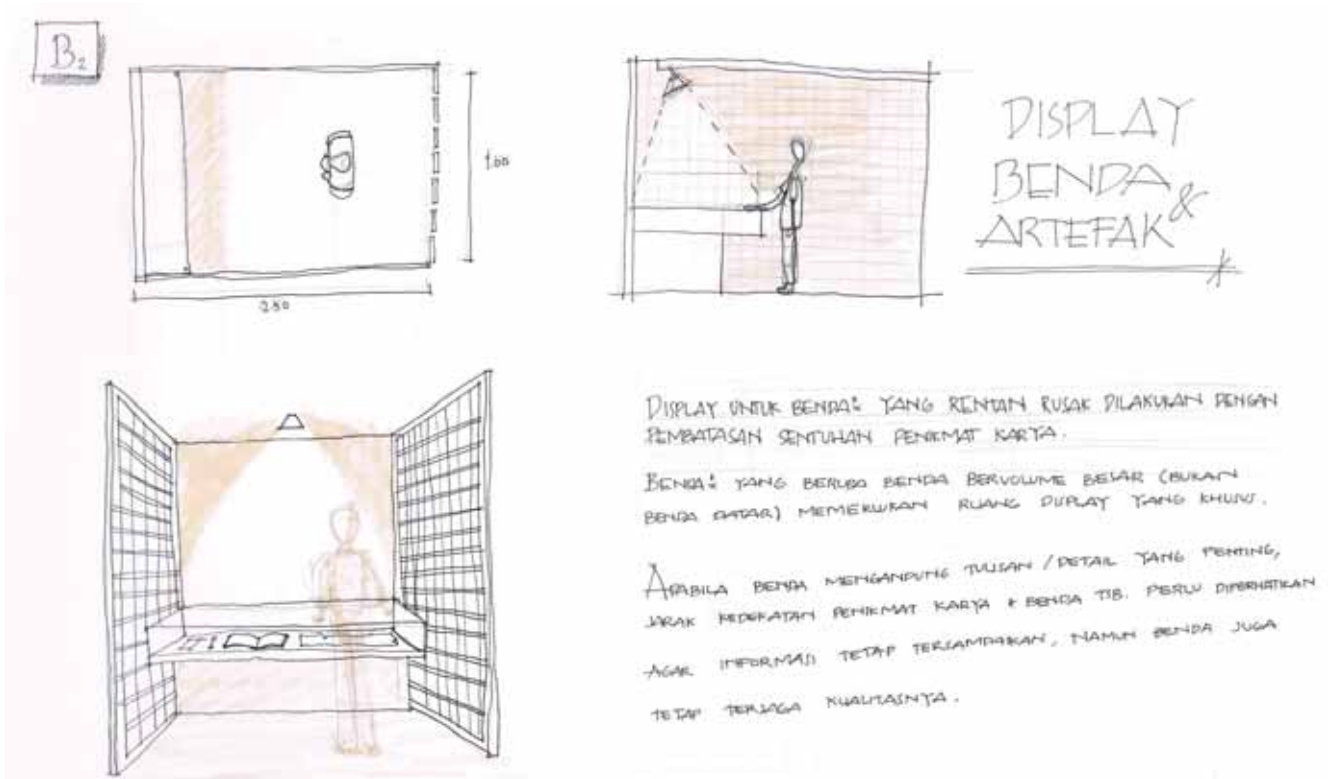 B2
1.00
250
DISPLAY
BENDA &
ARTEFAK
DISPLAY UNTUK BENDA² YANG RENTAN RUSAK DILAKUKAN DENGAN
PEMBATASAN SENTUHAN PENIKMAT KARYA.
BENDA² YANG BERUPA BENDA BERVOLUME BESAR (BUKAN
BENDA DATAR) MEMERLUKAN RUANG DISPLAY YANG KHUSUS.
APABILA BENDA MENGANDUNG TULISAN / DETAIL YANG PENTING,
JARAK KEDEKATAN PENIKMAT KARYA & BENDA TSB. PERLU DIPERHATIKAN
AGAR INFORMASI TETAP TERSAMPAIKAN, NAMUN BENDA JUGA
TETAP TERJAGA KUALITASNYA.